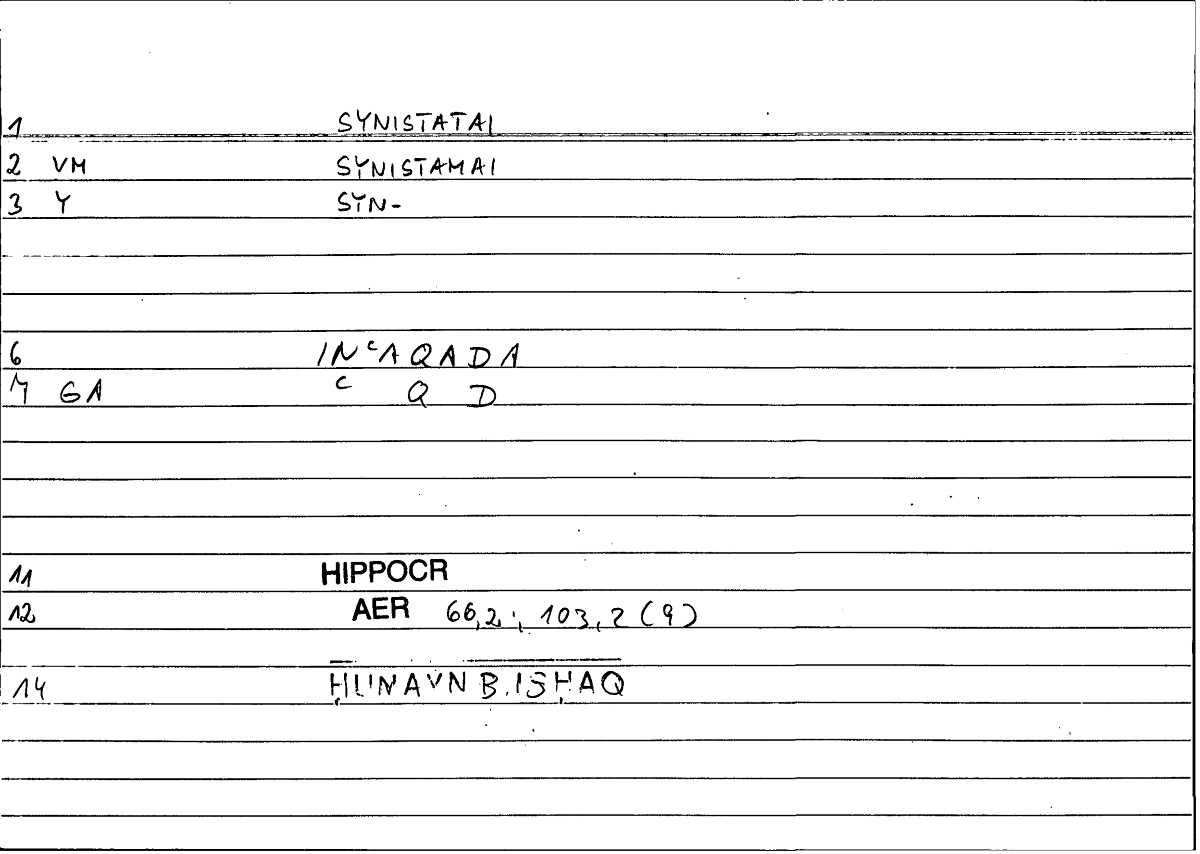 1 SYNISTATAI
2 VM SYNISTAMAI
3 Y SYN-
6 INʿAQADA
7 GA ʿ Q D
11 HIPPOCR
12 AER 66,2; 103,2 (9)
14 ḤUNAYN B. ISḤAQ